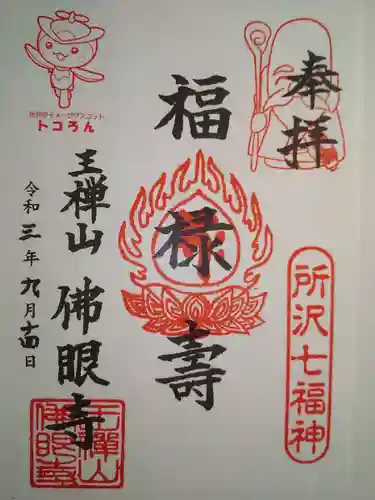 奉拝
所沢七福神
福禄壽
所沢市イメージマスコット
トコろん
王禅山 佛眼寺
令和三年九月十四日
王禅山
佛眼寺